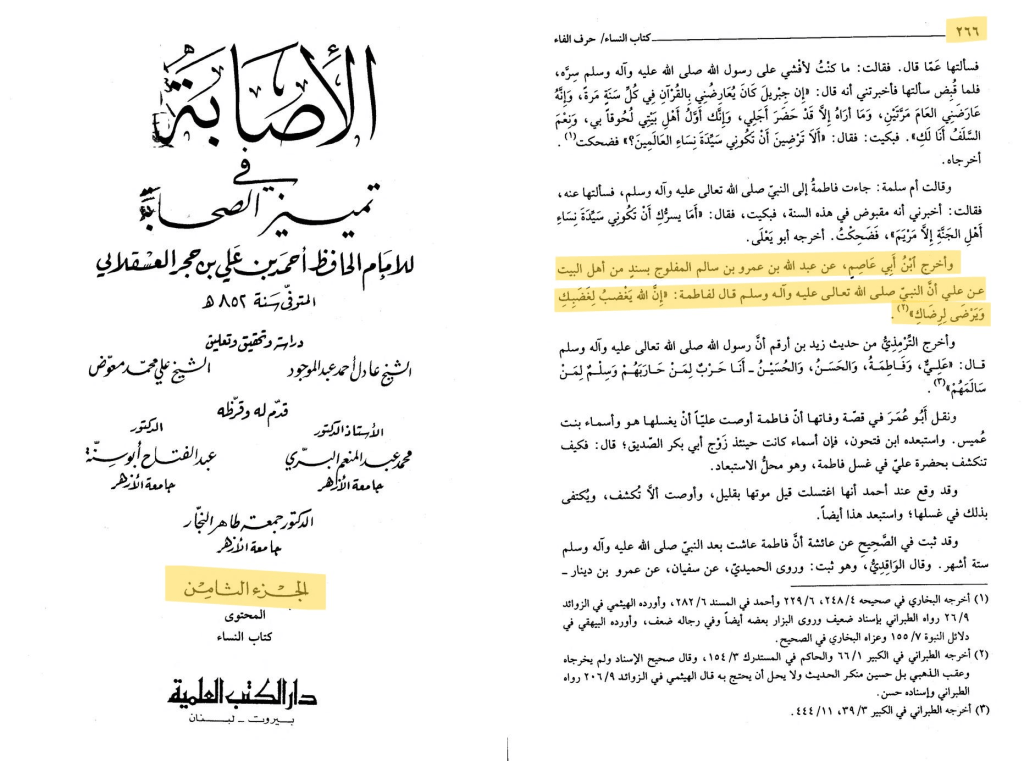 الأصابة
في
تمييز الصحابة
للامام الحافظ أحمد بن علي بن حجر العسقلاني
المتوفى سنة ٨٥٢ ه
دراسة وتحقيق وتعليق
الشيخ عادل أحمد عبد الموجود الشيخ علي محمد معوض
قدم له وقرظه
الأستاذ الدكتور الدكتور
محمد عبد المنعم البري عبد الفتاح أبو سنة
جامعة الأزهر جامعة الأزهر
الدكتور جمعة طاهر النجار
جامعة الأزهر
الجزء الثامن
المحتوى
كتاب النساء
دار الكتب العلمية
بيروت - لبنان
٢٦٦ كتاب النساء/ حرف الفاء
فسألتها عَمّا قال. فقالت: ما كنْتُ لأفْشي على رسول الله صلى الله عليه وآله وسلم سِرَّه،
فلما قُبِض سألتها فأخبرتني أنه قال: «إِن جِبْرِيلَ كَانَ يُعَارِضُنِي بِالقُرْآنِ فِي كُلِّ سَنَةٍ مَرةً، وَإِنَّهُ
عَارَضَنِي العَامَ مَرَّتَيْنِ، وَمَا أرَاهُ إلَّا قَدْ حَضَرَ أَجَلِي، وَإِنَّكِ أوَّلُ أهْلِ بَيْتِي لُحُوقاً بي، وَنِعْمَ
السَّلَفُ أَنَا لَكِ». فبكيت: فقال: «أَلَا تَرْضَينَ أَنْ تَكُونِي سَيِّدَةَ نِسَاءِ العَالَمِينَ؟» فضحكت(١).
أخرجاه.
وقالت أم سلمة: جاءت فاطمةُ إلى النبيّ صلى الله تعالى عليه وآله وسلم، فسألتها عنه،
فقالت: أخبرني أنه مقبوض في هذه السنة، فبكيت، فقال: «أمَا يسرُّكِ أنْ تَكُونِي سَيِّدَةَ نِسَاءِ
أهْلِ الجَنَّةِ إلَّا مَرْيَمَ»، فَضَحِكْتُ. أخرجه أبو يَعْلَى.
وأخرج ابْنُ أبِي عَاصِمٍ، عن عبد الله بن عمرو بن سالم المفلوج بسندٍ من أهل البيت
عن علي أنَّ النبيّ صلى الله تعالى عليه وآله وسلم قال لفاطمة: «إنَّ الله يَغْضبُ لِغَضَبِكِ
وَيَرْضَى لِرِضَاكِ»(٢).
وأخرج التِّرْمِذِيُّ من حديث زيد بن أرقم أنَّ رسول الله صلى الله تعالى عليه وآله وسلم
قال: «عَلِيٌّ، وَفَاطِمَةُ، وَالحَسَنُ، وَالحُسَيْنُ - أَنَا حَرْبٌ لِمَنْ حَارَبَهُمْ وَسِلْمٌ لِمَنْ
سَالَمَهُمْ»(٣).
ونقل أَبُو عُمَرَ في قصّة وفاتها أنّ فاطمة أوصت عليّاً أنْ يغسلها هو وأسماء بنت
عُميس. واستبعده ابن فتحون، فإن أسماء كانت حينئذ زَوْج أبي بكر الصّديق؛ قال: فكيف
تنكشف بحضرة عليّ في غسل فاطمة، وهو محلُّ الاستبعاد.
وقد وقع عند أحمد أنها اغتسلت قيل موتها بقليل، وأوصت ألاَّ تُكشف، ويُكتفى
بذلك في غسلها؛ واستبعد هذا أيضاً.
وقد ثبت في الصَّحِيح عن عائشة أنَّ فاطمة عاشت بعد النبيّ صلى الله عليه وآله وسلم
ستة أشهر. وقال الوَاقِدِيُّ، وهو ثبت: وروى الحميديّ، عن سفيان، عن عمرو بن دينار -
(١) أخرجه البخاري في صحيحه ٢٤٨/٤، ٢٢٩/٦ وأحمد في المسند ٢٨٢/٦، وأورده الهيثمي في الزوائد
٢٦/٩ رواه الطبراني بإسناد ضعيف وروى البزار بعضه أيضاً وفي رجاله ضعف، وأورده البيهقي في
دلائل النبوة ١٥٥/٧ وعزاه البخاري في الصحيح.
(٢) أخرجه الطبراني في الكبير ٦٦/١ والحاكم في المستدرك ١٥٤/٣، وقال صحيح الإسناد ولم يخرجاه
وعقب الذهبي بل حسين منكر الحديث ولا يحل أن يحتج به قال الهيثمي في الزوائد ٢٠٦/٩ رواه
الطبراني وإسناده حسن.
(٣) أخرجه الطبراني في الكبير ٣٩/٣، ٤٤٤/١١.